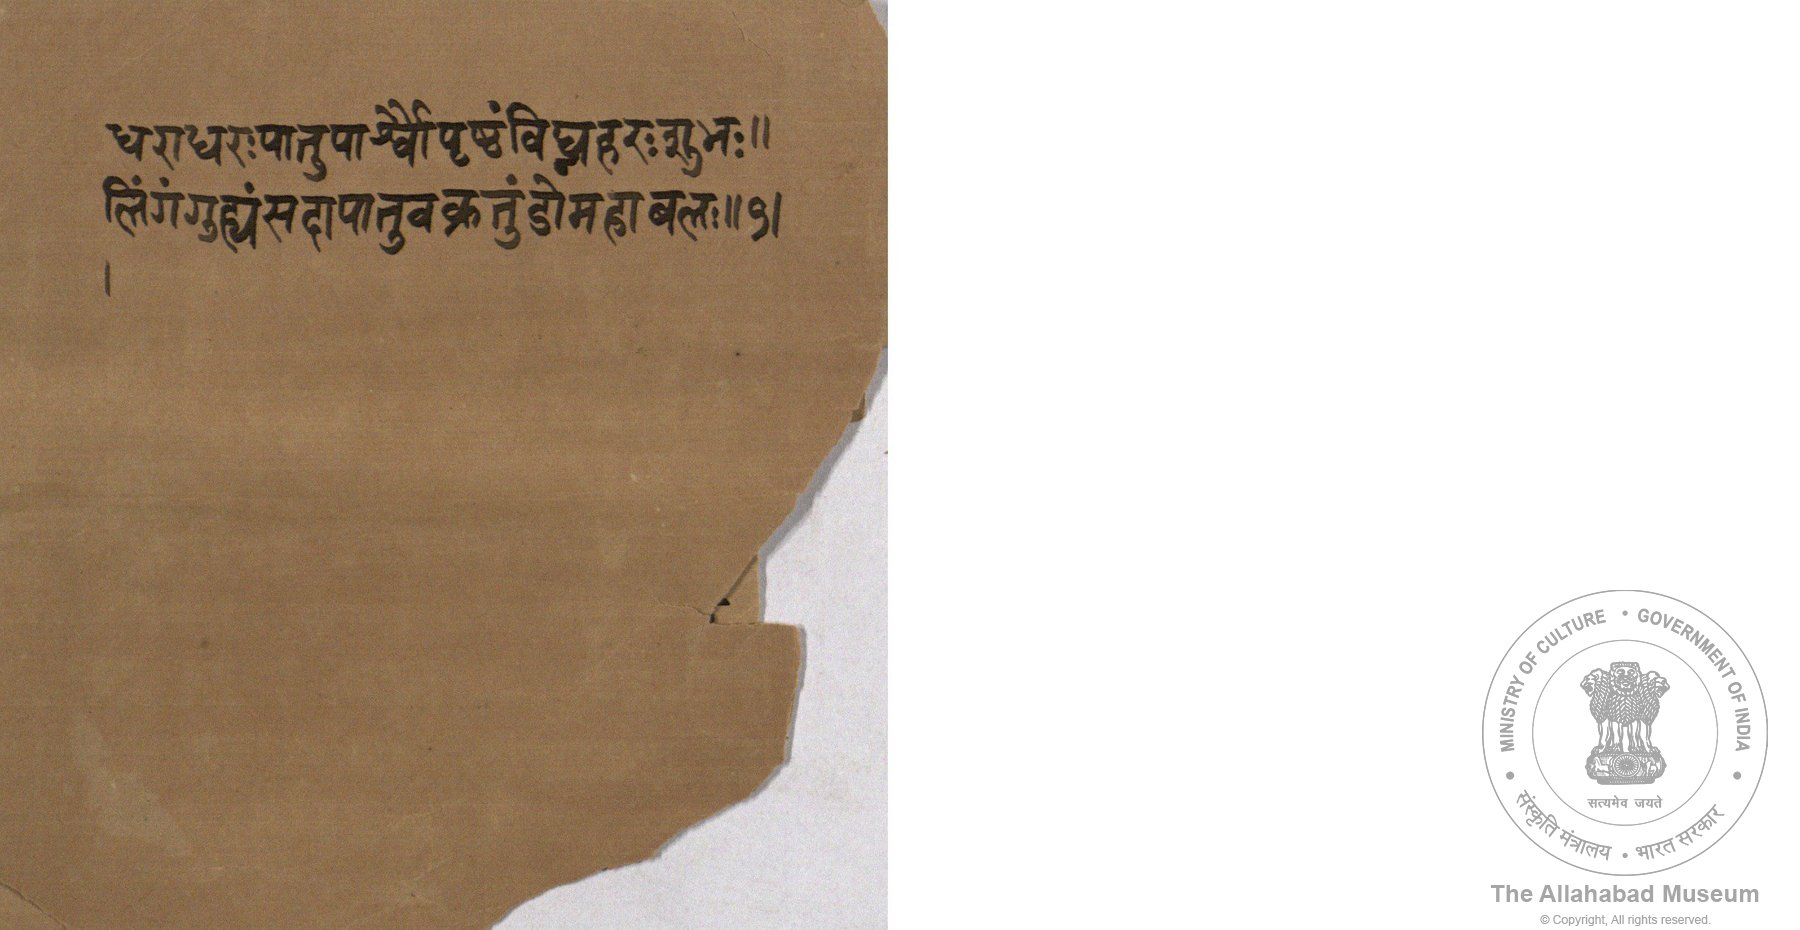 धराधरःपातुपार्श्वौपृष्ठंविघ्नहरःशुभः॥
लिंगंगुह्यंसदापातुवक्रतुंडोमहाबलः॥९।
।
MINISTRY OF CULTURE • GOVERNMENT OF INDIA
सत्यमेव जयते
संस्कृति मंत्रालय • भारत सरकार
The Allahabad Museum
© Copyright, All rights reserved.